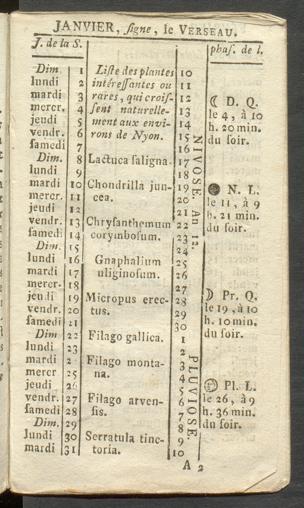 JANVIER, signe, le VERSEAU.
J. de la S. phas. de l.
Dim. 1 Liste des plantes 10
lundi 2 intéressantes ou 11
mardi 3 rares, qui crois- 12 ☾ D. Q.
mercr. 4 sent naturelle- 13 le 4, à 10
jeudi 5 ment aux envi- 14 h. 20 min.
vendr. 6 rons de Nyon. 15 du soir.
samedi 7 16
Dim. 8 Lactuca saligna. 17
lundi 9 18
mardi 10 Chondrilla jun- 19 N. L.
mercr. 11 cea. 20 le 11, à 9
jeudi 12 21 h. 21 min.
vendr. 13 Chrysanthemum 22 du soir.
samedi 14 corymbosum. 23
Dim. 15 24
lundi 16 Gnaphalium 25
mardi 17 uliginosum. 26
mercr. 18 27
jeudi 19 Micropus erec- 28 ☽ Pr. Q.
vendr. 20 tus. 29 le 19, à 10
samedi 21 30 h. 10 min.
Dim. 22 Filago gallica. 1 du soir.
lundi 23 2
mardi 2 Filago monta- 3
mercr 25 na. 4
jeudi 26 5 Pl. L.
vendr. 27 Filago arven- 6 le 26, à 9
samedi 28 sis. 7 h. 36 min.
Dim. 29 8 du soir.
lundi 30 Serratula tinc- 9
mardi 31 toria. 10
NIVOSE. An 12.
PLUVIOSE.
A 2